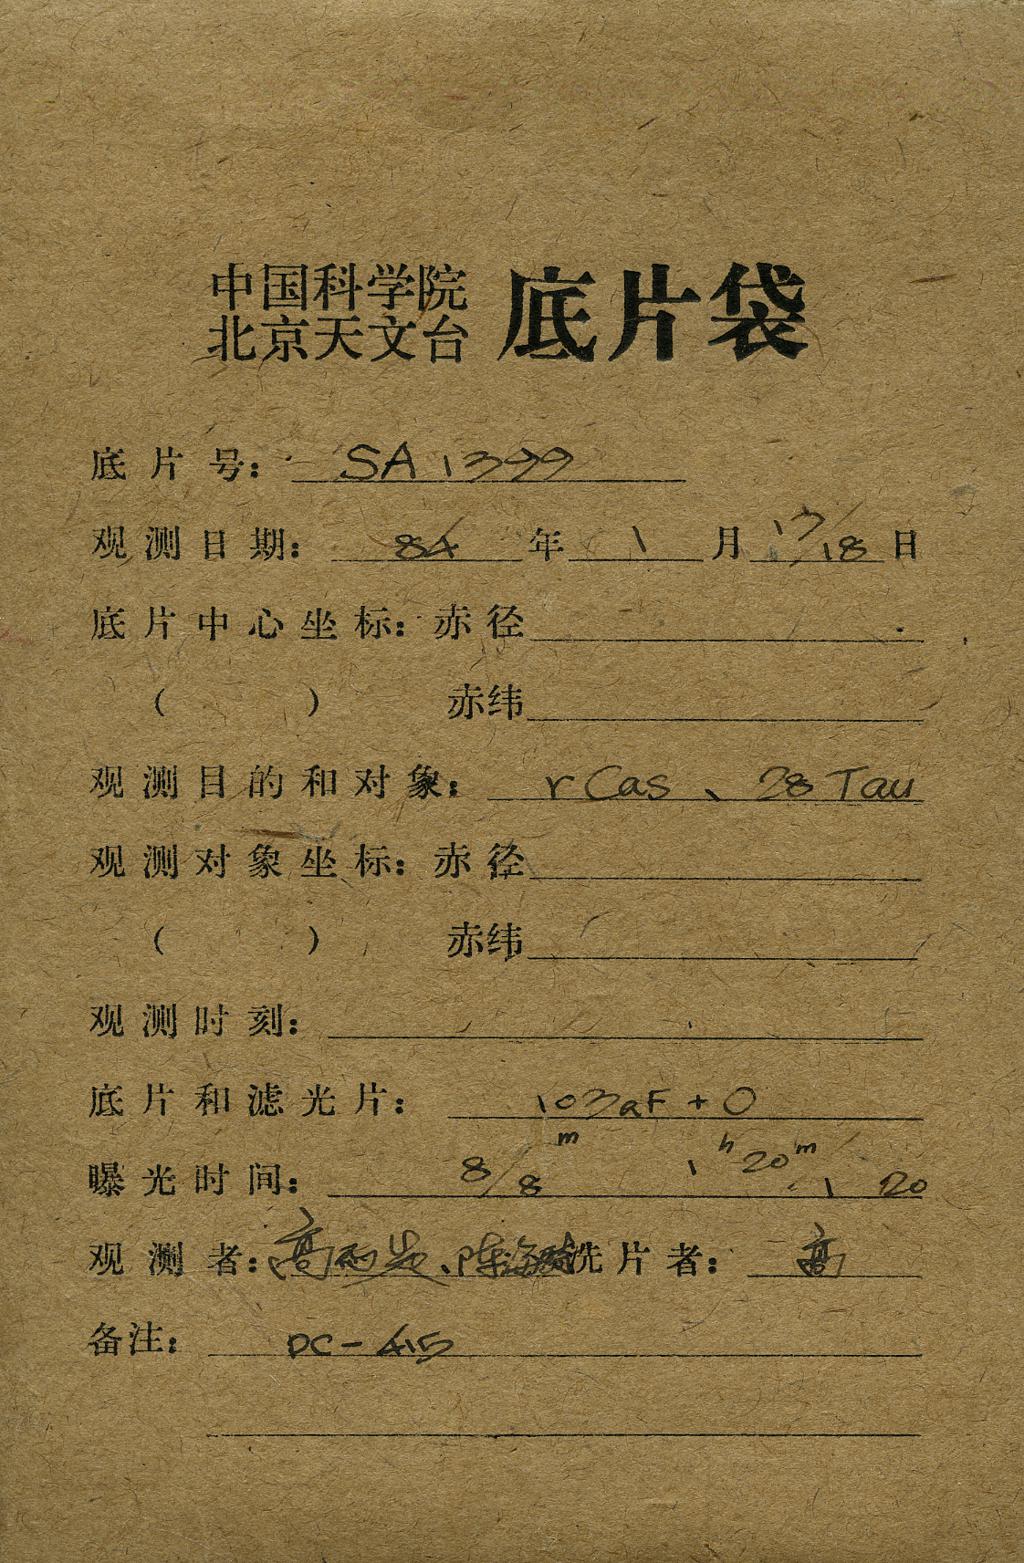 中国科学院
北京天文台 底片袋
底片号: SA 1399
观测日期: 84 年 1 月 17/18 日
底片中心坐标: 赤径
( ) 赤纬
观测目的和对象: r Cas、28 Tau
观测对象坐标: 赤径
( ) 赤纬
观测时刻:
底片和滤光片: 103aF + O
曝光时间: 8/8m 1h20m/1 20
观测者: 高 、陈海 洗片者: 高
备注: DC-415